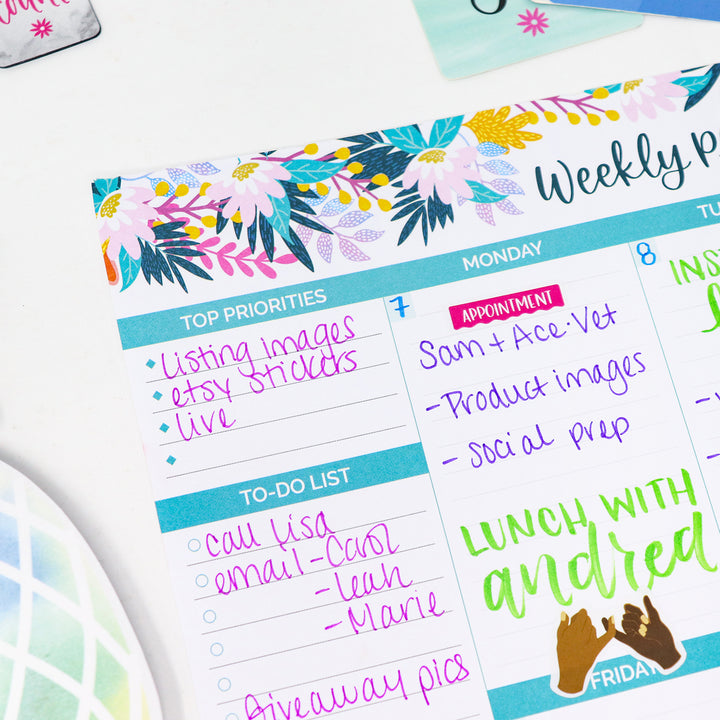 Weekly P
TOP PRIORITIES
listing images
etsy stickers
live
TO-DO LIST
call lisa
email - Carol
- Leah
- Marie
Giveaway pics
MONDAY
7
APPOINTMENT
Sam + Ace · Vet
- Product images
- social prep
LUNCH WITH
andrea
FRIDAY
TU
8
INS